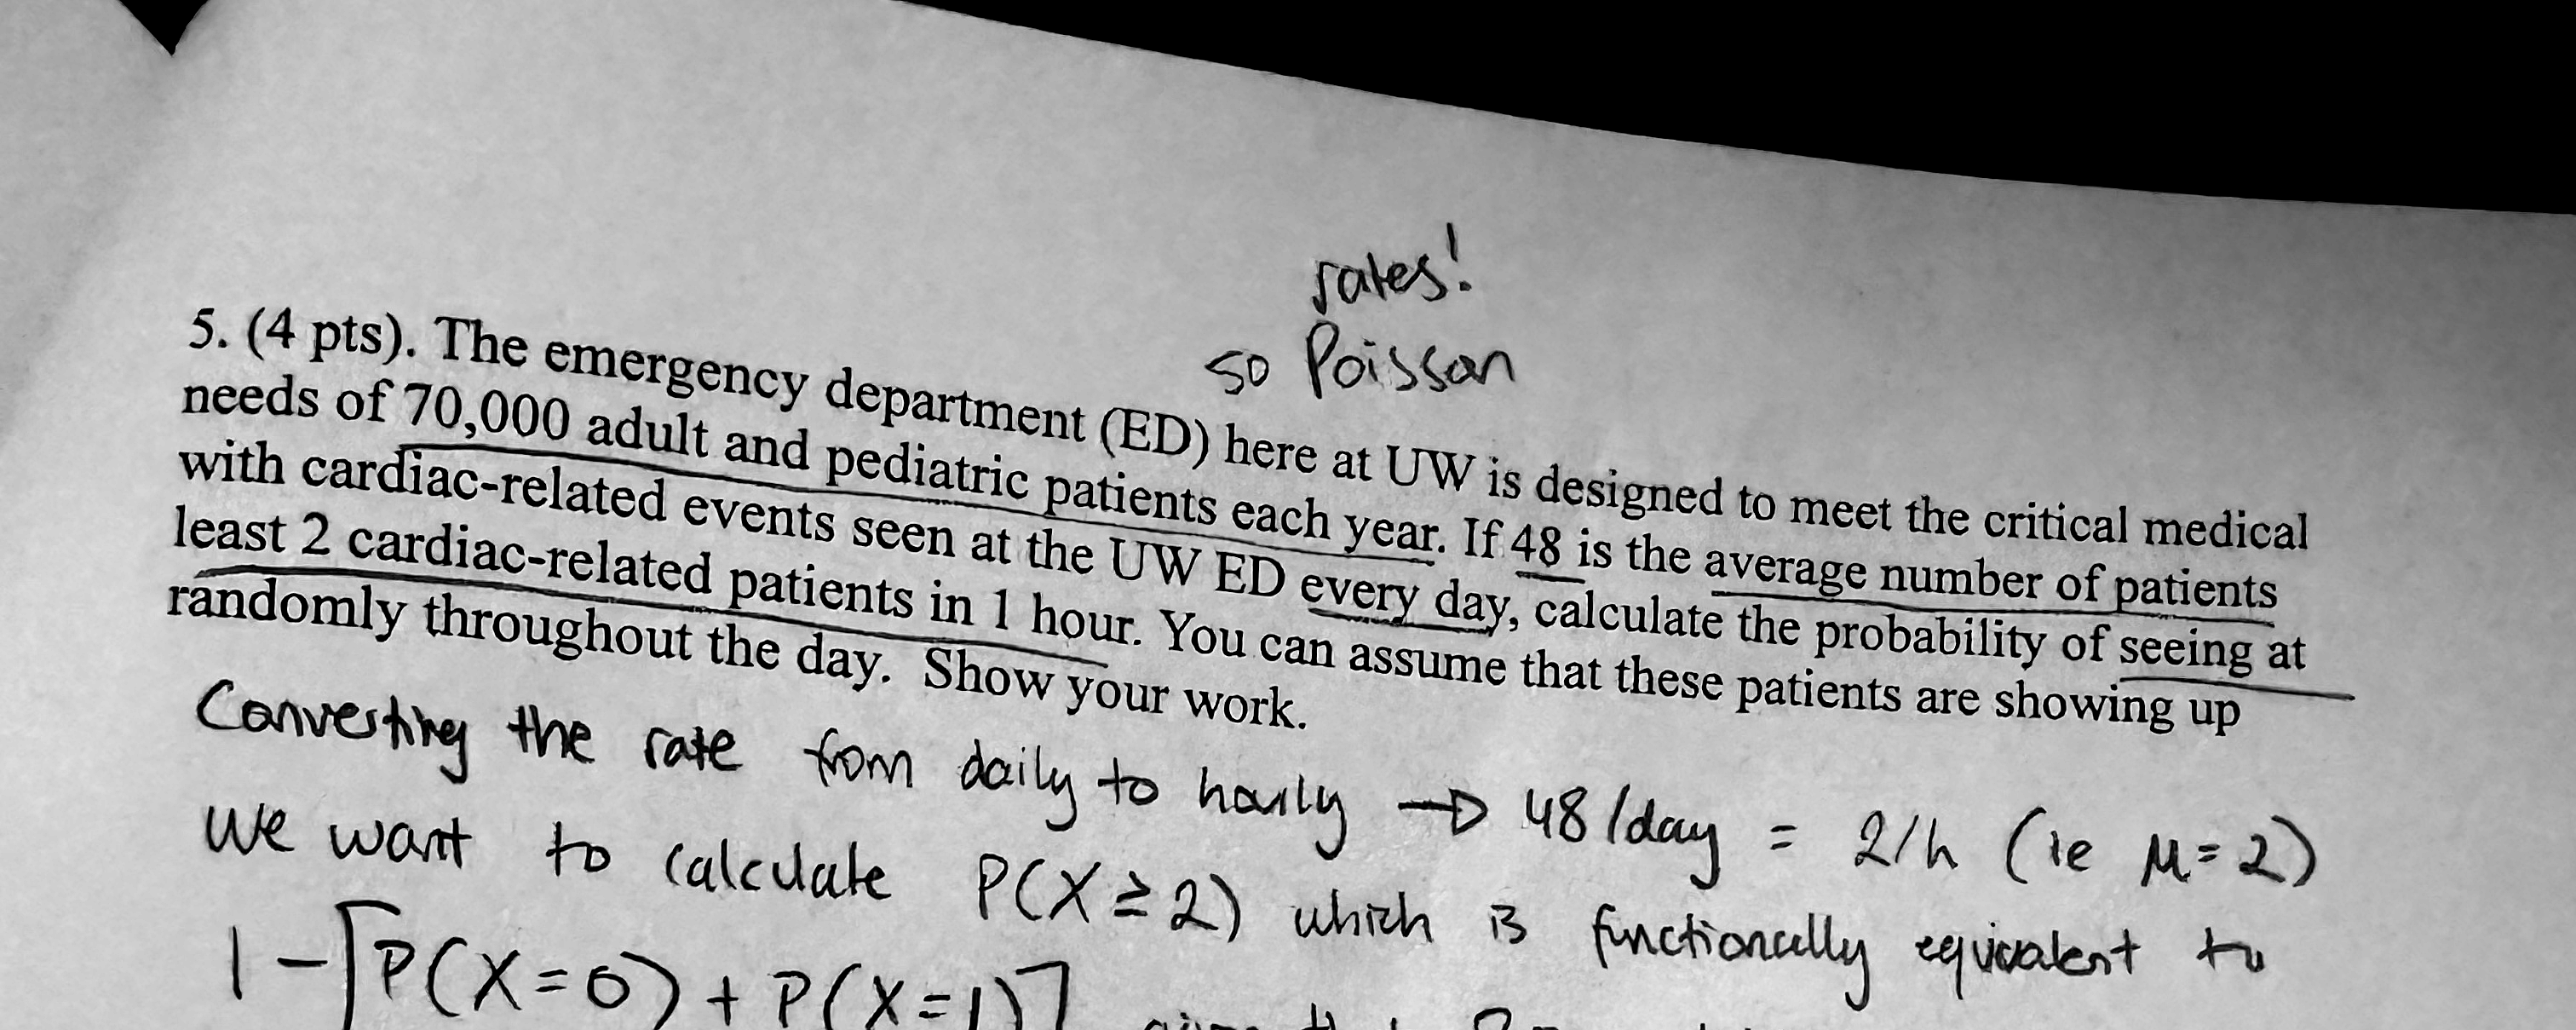 rates!
so Poisson
5. (4 pts). The emergency department (ED) here at UW is designed to meet the critical medical
needs of 70,000 adult and pediatric patients each year. If 48 is the average number of patients
with cardiac-related events seen at the UW ED every day, calculate the probability of seeing at
least 2 cardiac-related patients in 1 hour. You can assume that these patients are showing up
randomly throughout the day. Show your work.
Converting the rate from daily to hourly → 48/day = 2/h (ie μ=2)
We want to calculate P(X≥2) which is functionally equivalent to
1-[P(X=0)+P(X=1)]